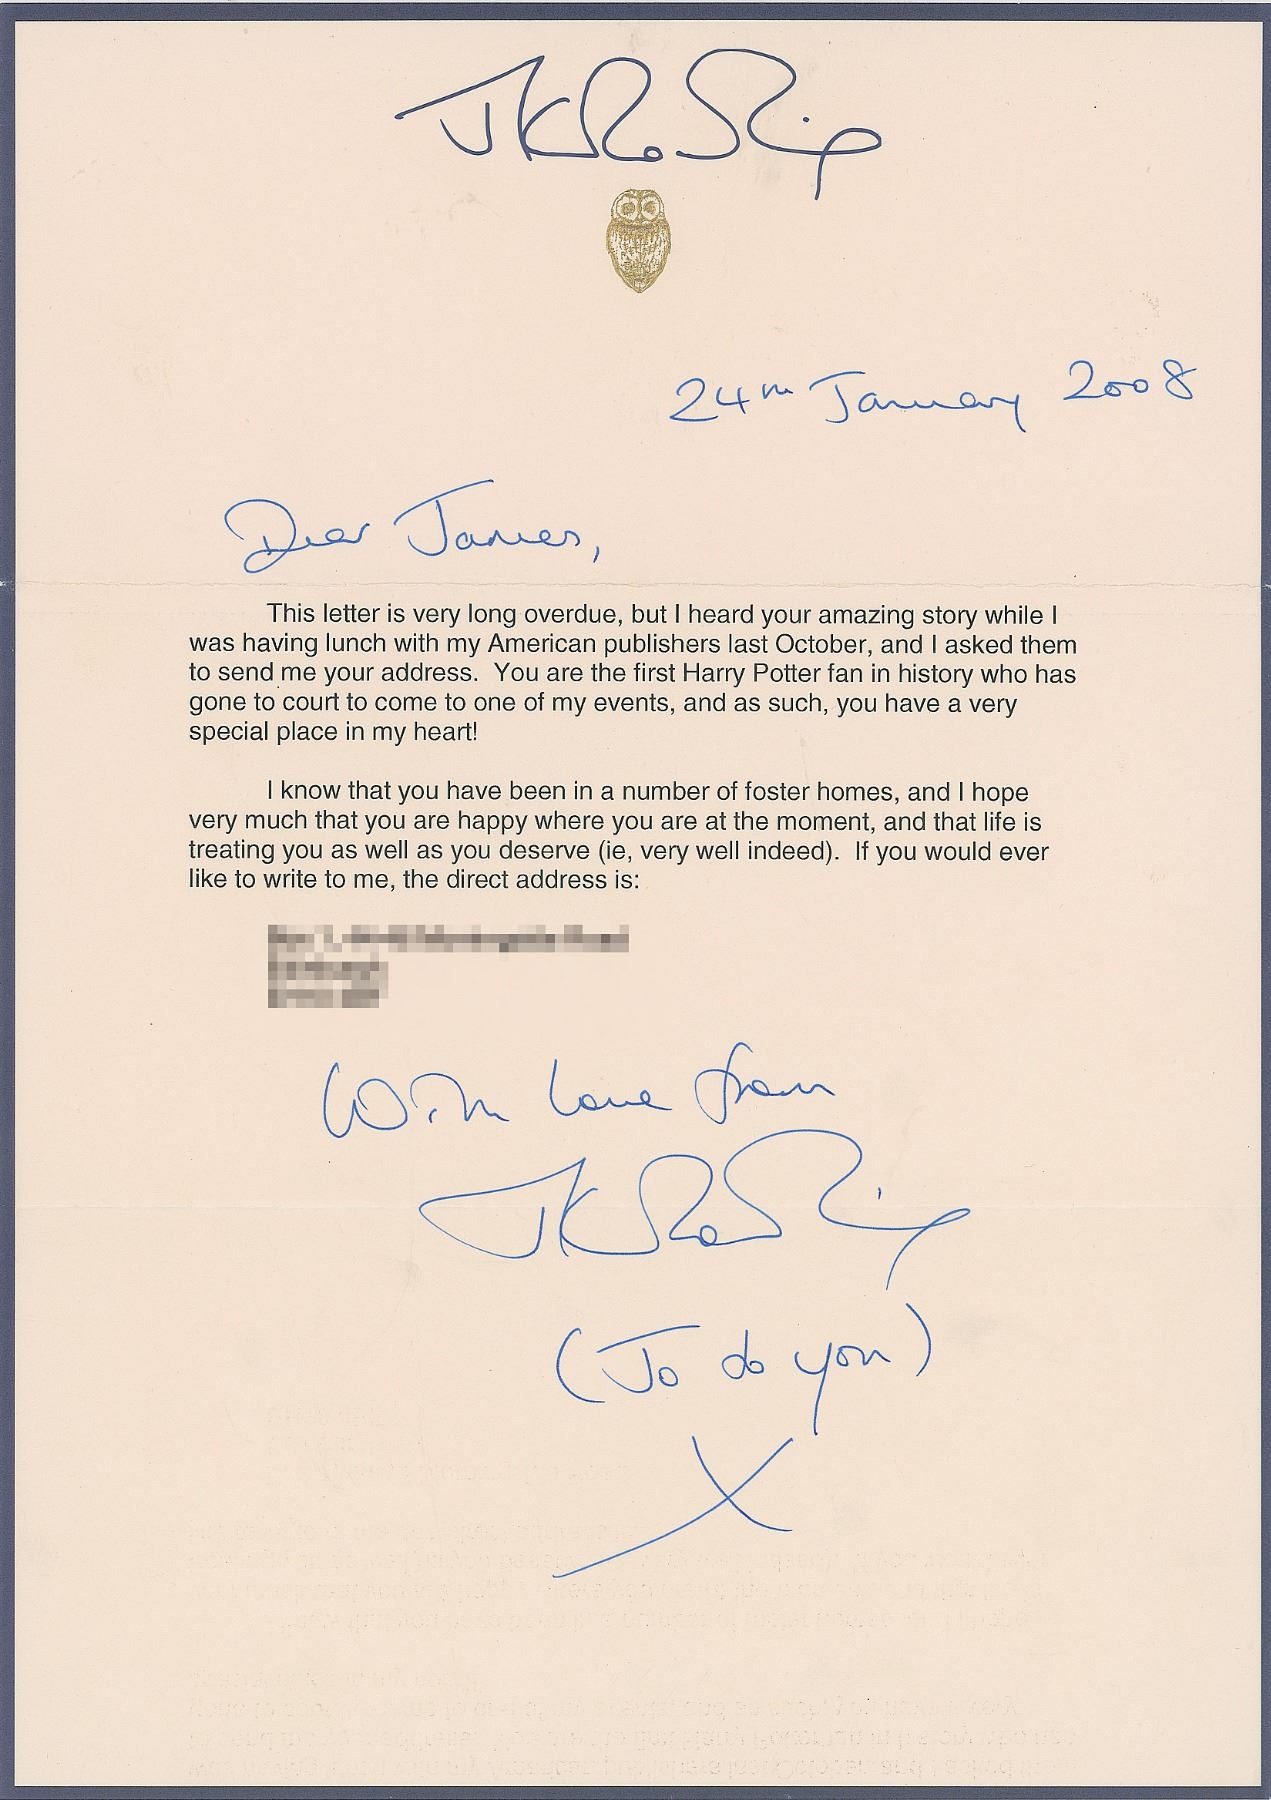 JKRowling
24th January 2008
Dear James,
This letter is very long overdue, but I heard your amazing story while I
was having lunch with my American publishers last October, and I asked them
to send me your address.  You are the first Harry Potter fan in history who has
gone to court to come to one of my events, and as such, you have a very
special place in my heart!
I know that you have been in a number of foster homes, and I hope
very much that you are happy where you are at the moment, and that life is
treating you as well as you deserve (ie, very well indeed).  If you would ever
like to write to me, the direct address is:
With love from
JKRowling
(Jo to you)
X